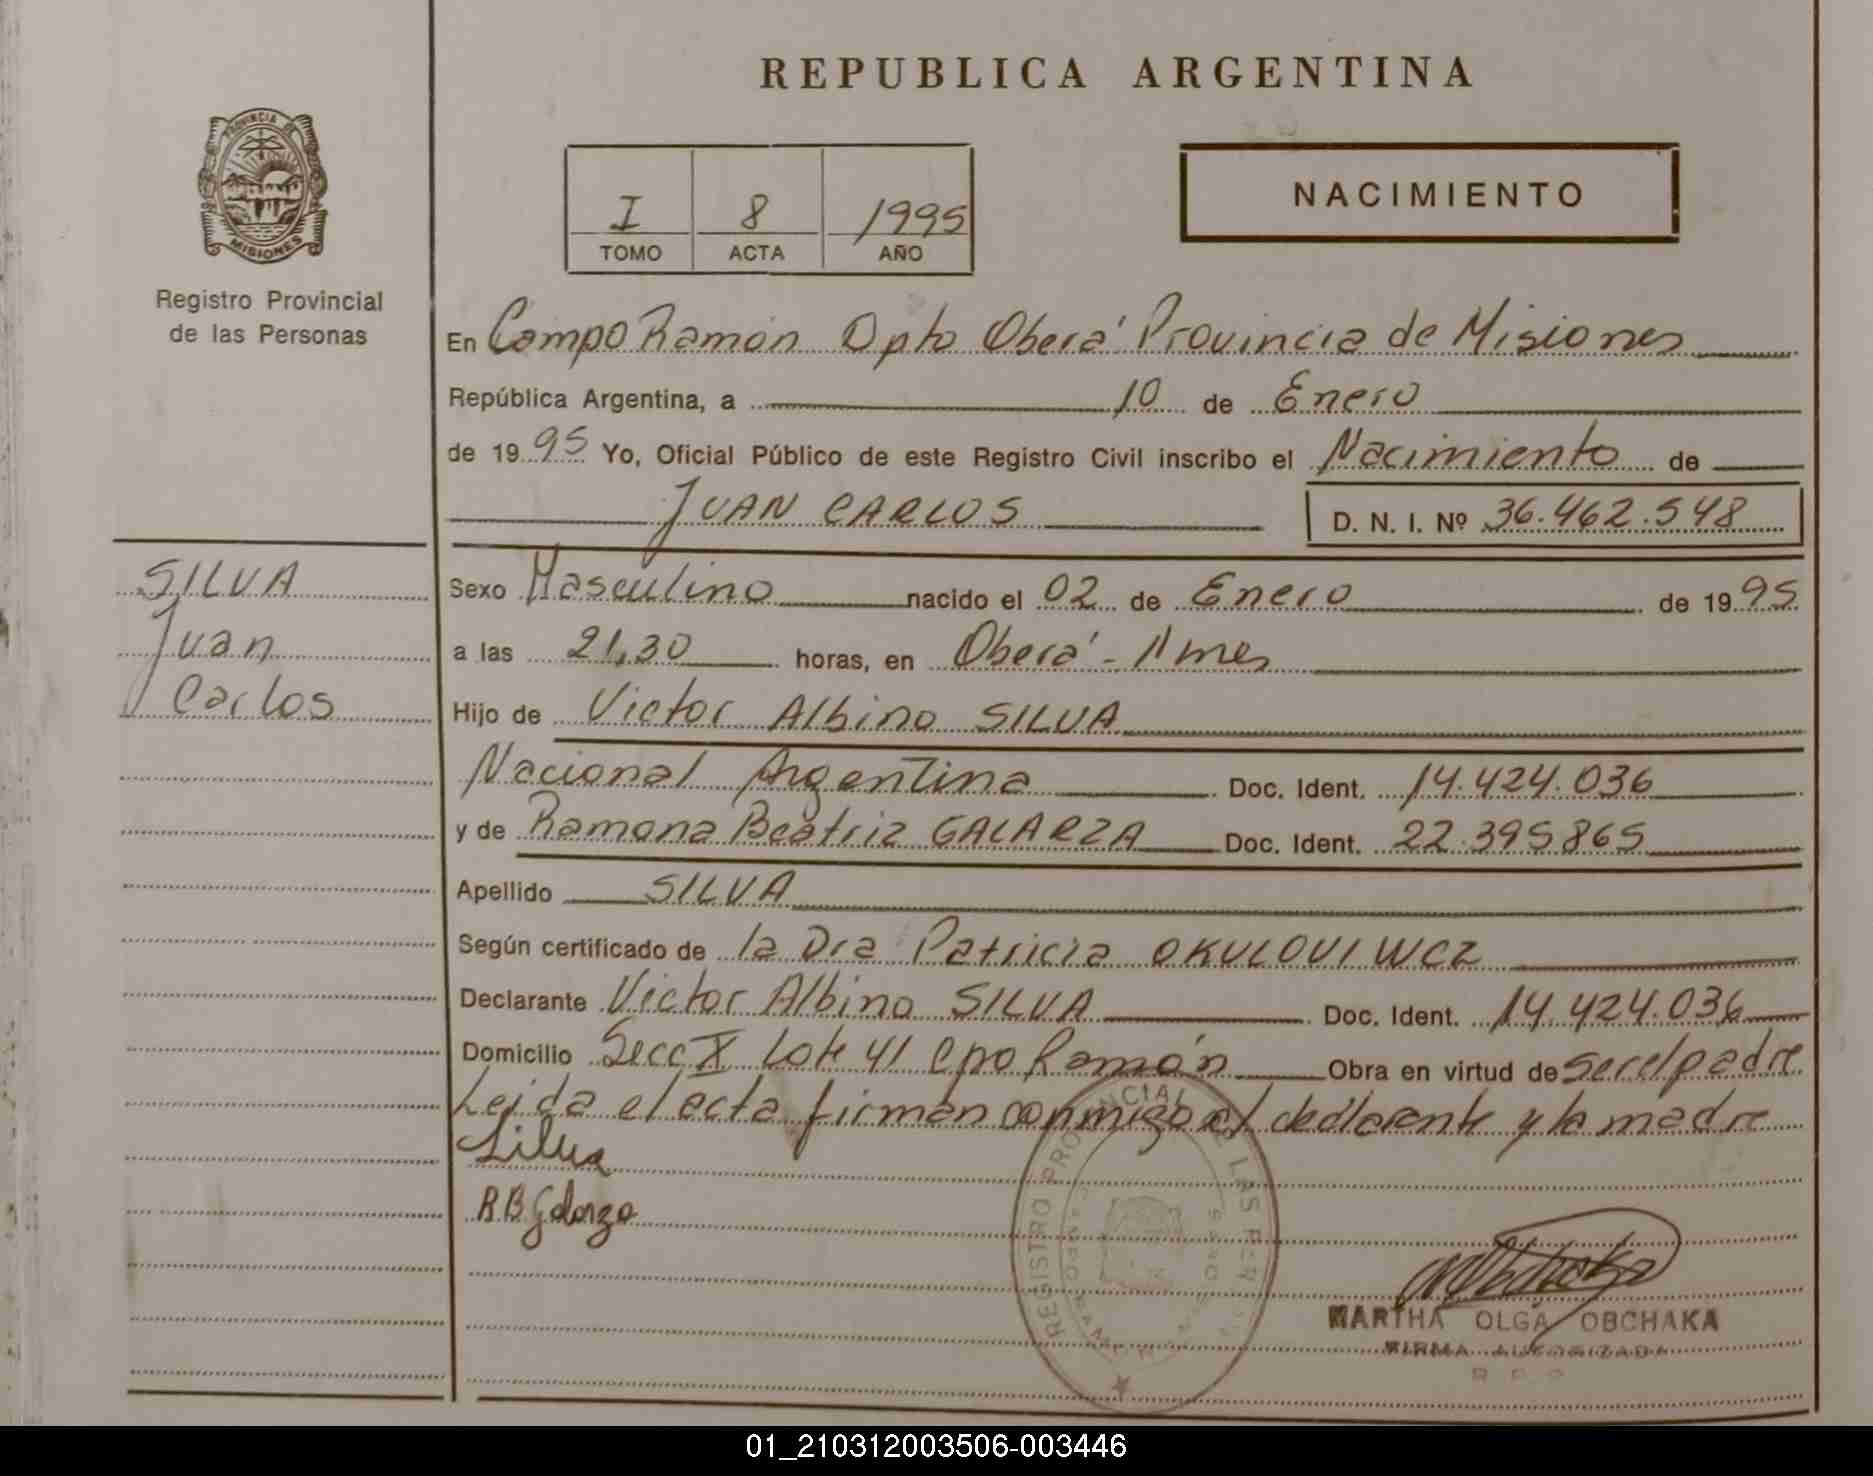 REPUBLICA ARGENTINA
PROVINCIA DE
MISIONES
Registro Provincial
de las Personas
I 8 1995
TOMO ACTA AÑO
NACIMIENTO
En Campo Ramón Dpto Oberá Provincia de Misiones
República Argentina, a 10 de Enero
de 1995 Yo, Oficial Público de este Registro Civil inscribo el Nacimiento de
JUAN CARLOS D. N. I. Nº 36.462.548
SILVA
Juan
Carlos
Sexo Masculino nacido el 02 de Enero de 1995
a las 21,30 horas, en Oberá -
Hijo de Victor Albino SILVA
Nacional Argentina Doc. Ident. 14.424.036
y de Ramona Beatriz GALARZA Doc. Ident. 22.395865
Apellido SILVA
Según certificado de la Dra Patricia OKULOVIWCZ
Declarante Victor Albino SILVA Doc. Ident. 14.424.036
Domicilio Secc X Lote 41 Cpo Ramón Obra en virtud de ser el padre
Leida el acta firman conmigo el declarante y la madre
Silva
R B Galarza
REGISTRO PROVINCIAL DE LAS PER
MARTHA OLGA OBCHAKA
FIRMA AUTORIZADA
01_210312003506-003446